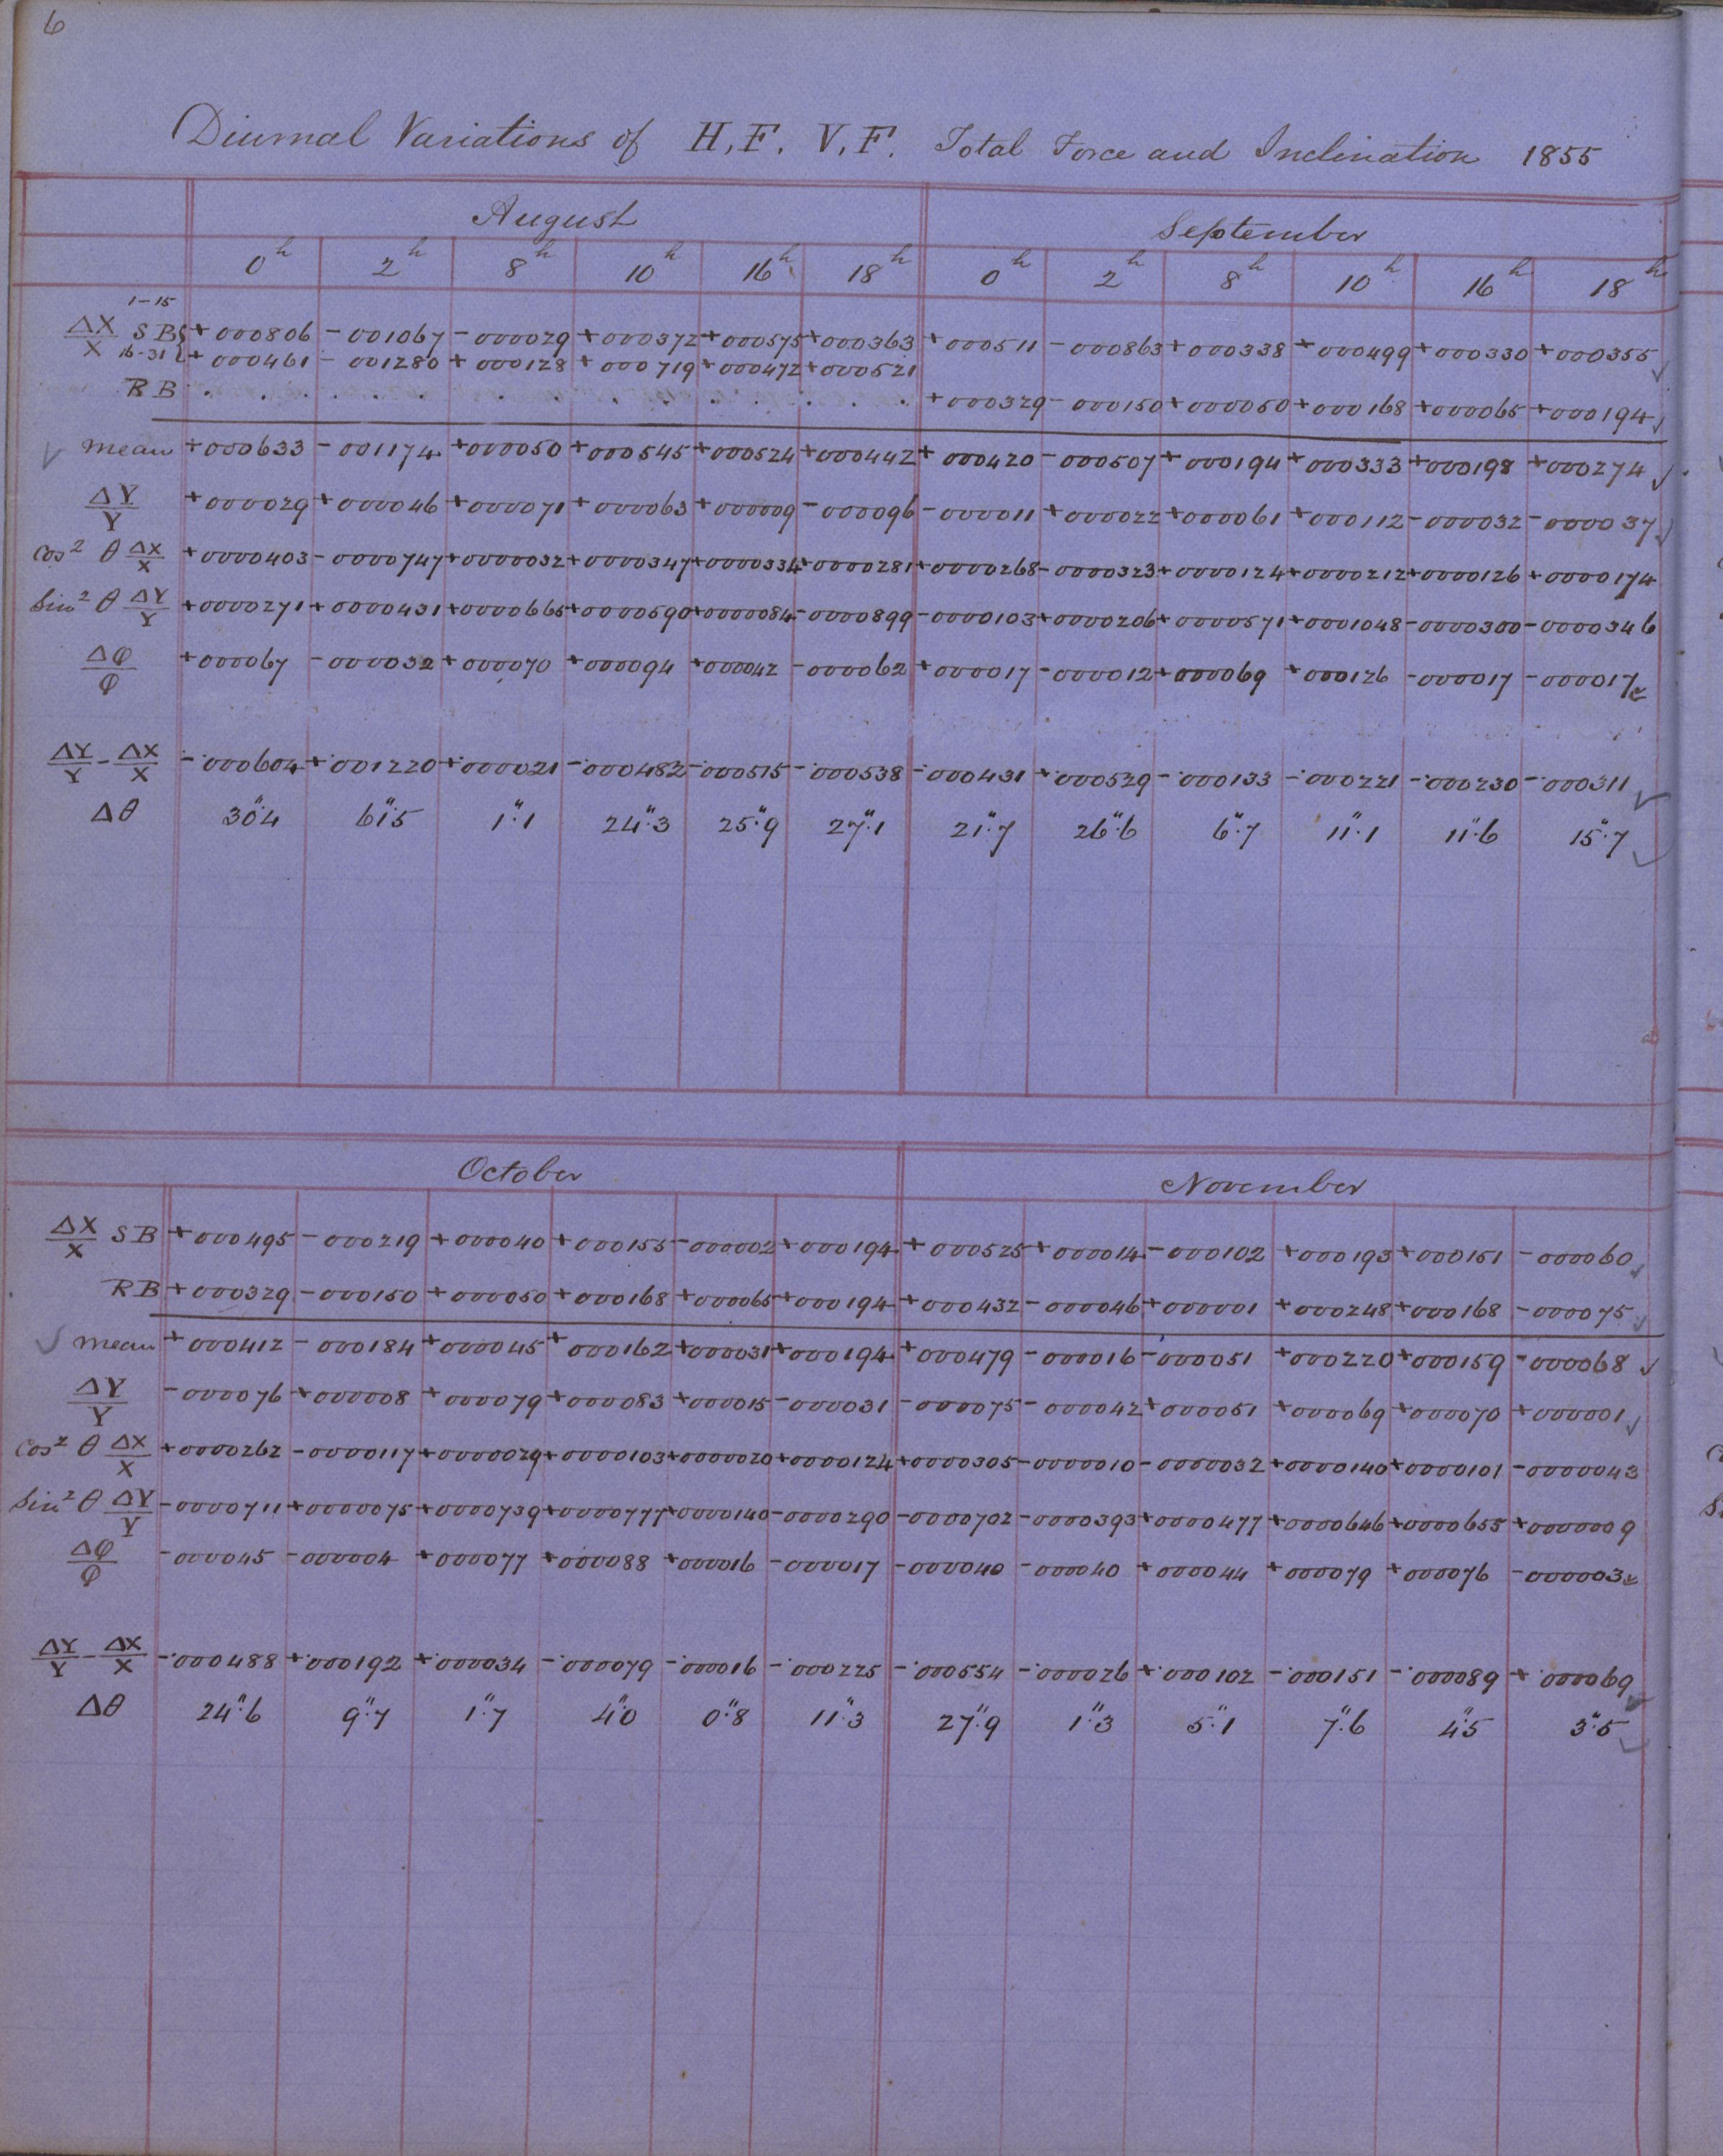 6
Diurnal Variations of H.F. V.F. Total Force and Inclination 1855
August September
0h 2h 8h 10h 16h 18h 0h 2h 8h 10h 16h 18h
1-15
ΔX/X SB +000806 -001067 -000029 +000372 +000575 +000363 +000511 -000863 +000338 +000499 +000330 +000355
16-31 +000461 -001280 +000128 +000719 +000472 +000521
RB . . . . . . . . . . . . +000329 -000150 +000050 +000168 +000065 +000194
mean +000633 -001174 +000050 +000545 +000524 +000442 +000420 -000507 +000194 +000333 +000198 +000274
ΔY/Y +000029 +000046 +000071 +000063 +000009 -000096 -000011 +000022 +000061 +000112 -000032 -000037
Cos² θ ΔX/X +0000403 -0000747 +0000032 +0000347 +0000334 +0000281 +0000268 -0000323 +0000124 +0000212 +0000126 +0000174
Sin² θ ΔY/Y +0000271 +0000431 +0000665 +0000590 +0000084 -0000899 -0000103 +0000206 +0000571 +0001048 -0000300 -0000346
Δφ/φ +000067 -000032 +000070 +000094 +000042 -000062 +000017 -000012 +000069 +000126 -000017 -000017
ΔY/Y - ΔX/X -·000604 +·001220 +·000021 -·000482 -·000515 -·000538 -·000431 +·000529 -·000133 -·000221 -·000230 -·000311
Δθ 30".4 61".5 1".1 24".3 25".9 27".1 21".7 26".6 6".7 11".1 11".6 15".7
October November
ΔX/X SB +000495 -000219 +000040 +000155 -000002 +000194 +000525 +000014 -000102 +000193 +000151 -000060
RB +000329 -000150 +000050 +000168 +000065 +000194 +000432 -000046 +000001 +000248 +000168 -000075
mean +000412 -000184 +000045 +000162 +000031 +000194 +000479 -000016 -000051 +000220 +000159 -000068
ΔY/Y -000076 +000008 +000079 +000083 +000015 -000031 -000075 -000042 +000051 +000069 +000070 +000001
Cos² θ ΔX/X +0000262 -0000117 +0000029 +0000103 +0000020 +0000124 +0000305 -0000010 -0000032 +0000140 +0000101 -0000043
Sin² θ ΔY/Y -0000711 +0000075 +0000739 +0000777 +0000140 -0000290 -0000702 -0000393 +0000477 +0000646 +0000655 +0000009
Δφ/φ -000045 -000004 +000077 +000088 +000016 -000017 -000040 -000040 +000044 +000079 +000076 -000003
ΔY/Y - ΔX/X -·000488 +·000192 +·000034 -·000079 -·000016 -·000225 -·000554 -·000026 +·000102 -·000151 -·000089 +·000069
Δθ 24".6 9".7 1".7 4".0 0".8 11".3 27".9 1".3 5".1 7".6 4".5 3".5